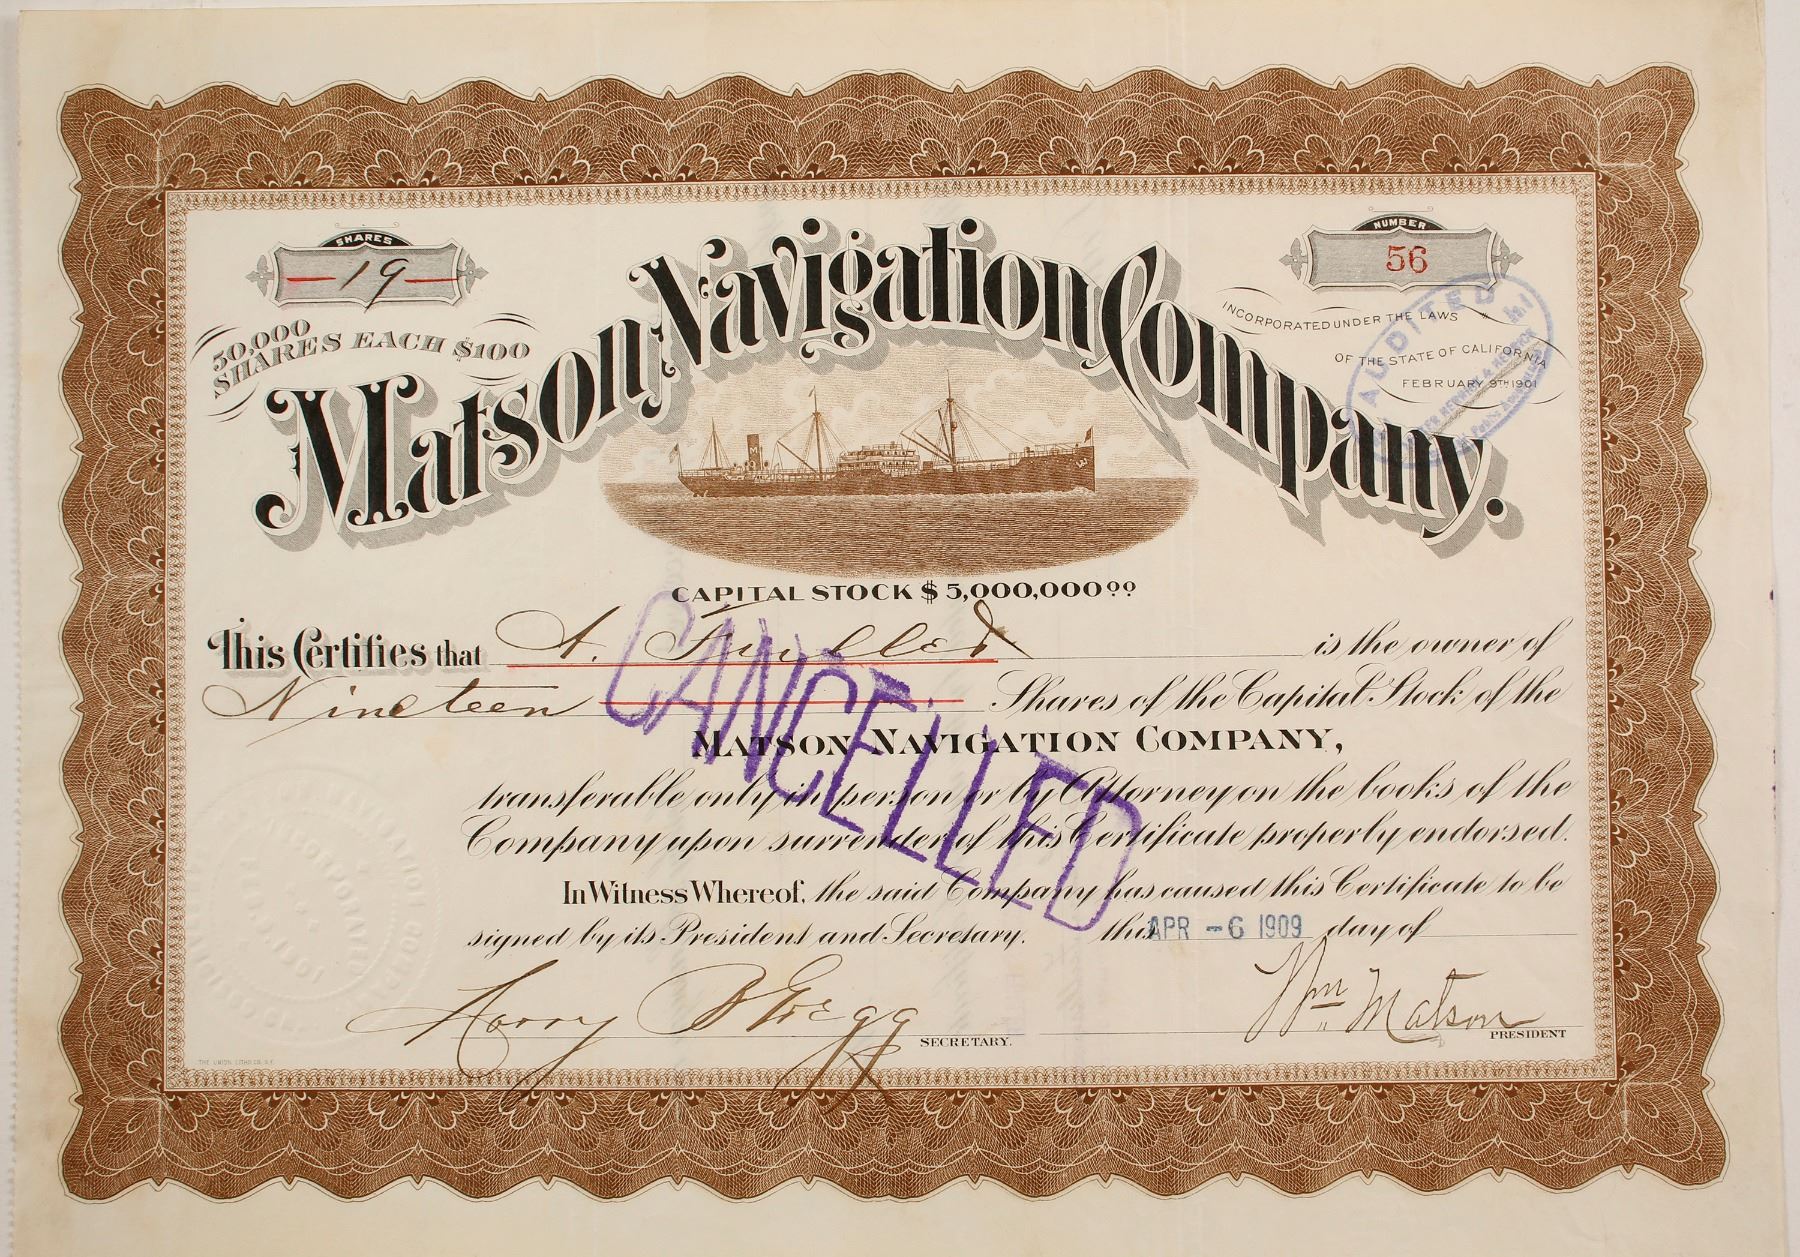 SHARES
19
NUMBER
56
50,000
SHARES EACH $100
Matson Navigation Company.
INCORPORATED UNDER THE LAWS
OF THE STATE OF CALIFORNIA
FEBRUARY 9TH 1901
AUDITED
CAPITAL STOCK $5,000,000.00
This Certifies that A. is the owner of
Nineteen Shares of the Capital Stock of the
MATSON NAVIGATION COMPANY,
transferable only in person or by Attorney on the books of the
Company upon surrender of this Certificate properly endorsed.
In Witness Whereof, the said Company has caused this Certificate to be
signed by its President and Secretary. this APR -6 1909 day of
CANCELLED
Harry B Gregg SECRETARY.
Wm Matson PRESIDENT
INCORPORATED
FEB. 9, 1901
THE UNION LITHO CO. S.F.